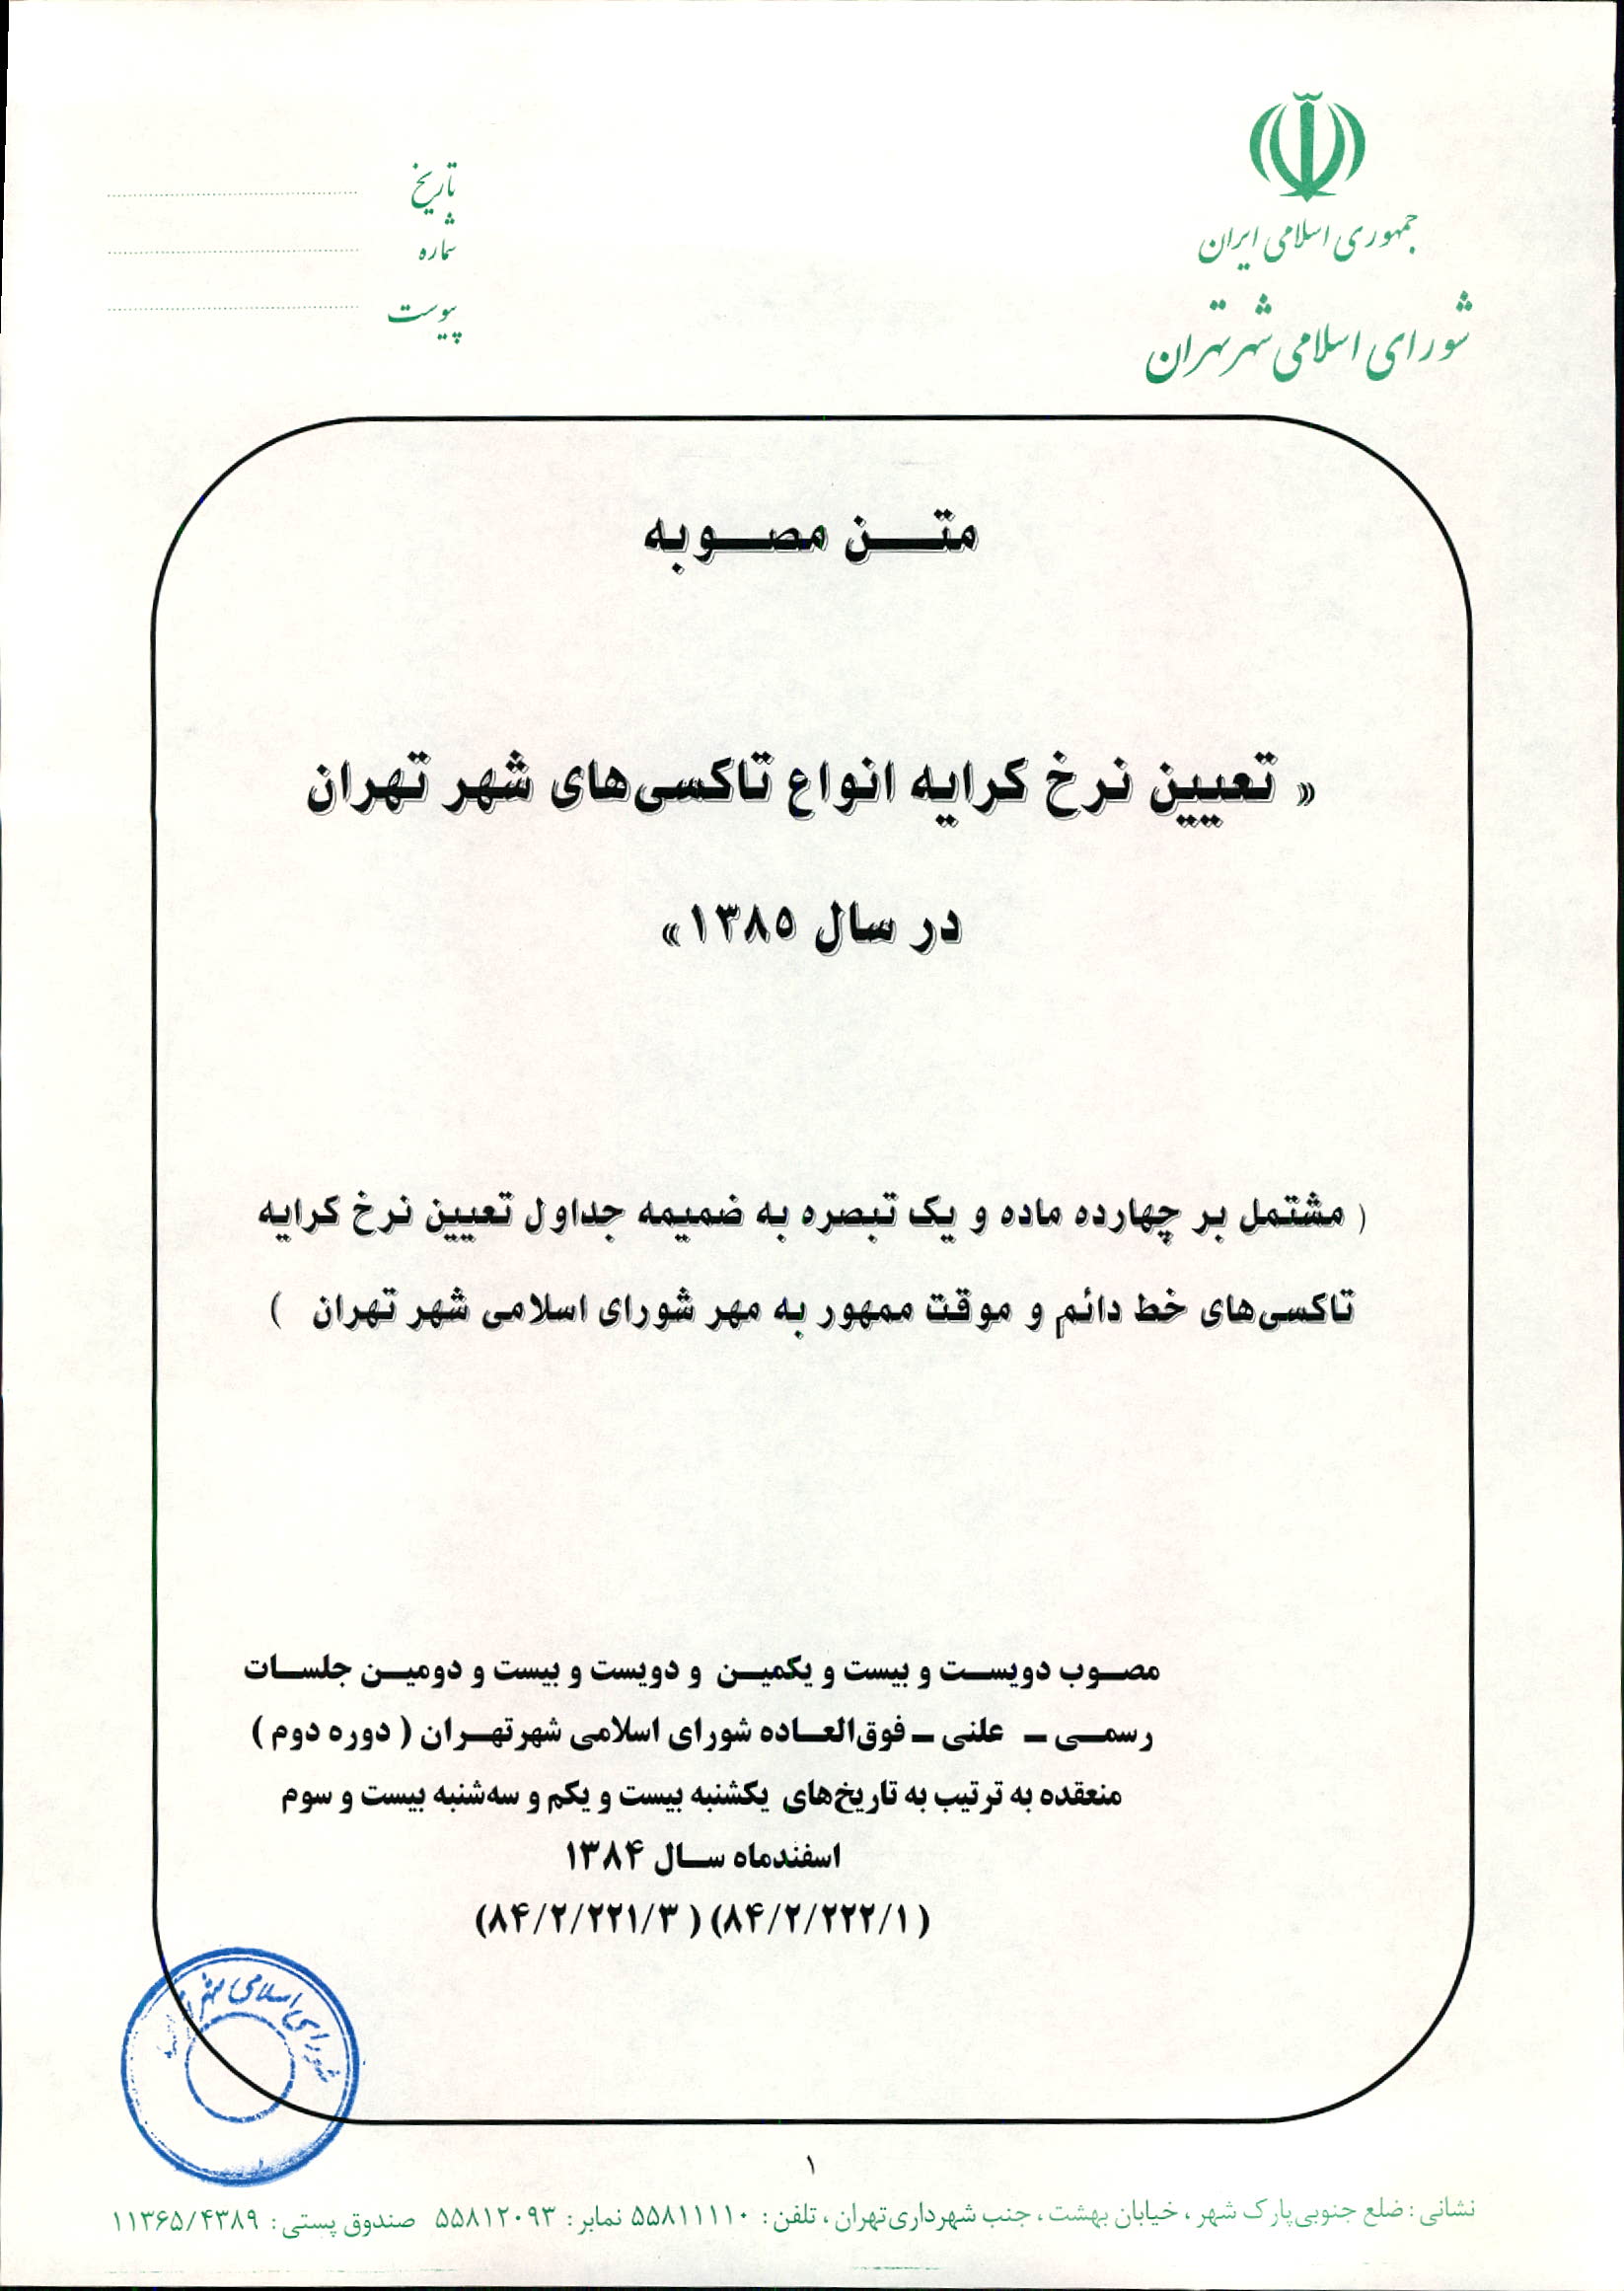 جمهوری اسلامی ایران
شورای اسلامی شهر تهران
تاریخ
شماره
پیوست
متن مصوبه
« تعیین نرخ کرایه انواع تاکسی‌های شهر تهران
در سال ۱۳۸۵»
( مشتمل بر چهارده ماده و یک تبصره به ضمیمه جداول تعیین نرخ کرایه
تاکسی‌های خط دائم و موقت ممهور به مهر شورای اسلامی شهر تهران )
مصوب دویست و بیست و یکمین و دویست و بیست و دومین جلسات
رسمی – علنی – فوق‌العاده شورای اسلامی شهر تهران ( دوره دوم )
منعقده به ترتیب به تاریخ‌های یکشنبه بیست و یکم و سه‌شنبه بیست و سوم
اسفندماه سال ۱۳۸۴
(۸۴/۲/۲۲۲/۱) (۸۴/۲/۲۲۱/۳)
شورای اسلامی شهر
۱
نشانی : ضلع جنوبی پارک شهر ، خیابان بهشت ، جنب شهرداری تهران ، تلفن : ۵۵۸۱۱۱۱۰ نمابر : ۵۵۸۱۲۰۹۳ صندوق پستی : ۱۱۳۶۵/۴۳۸۹